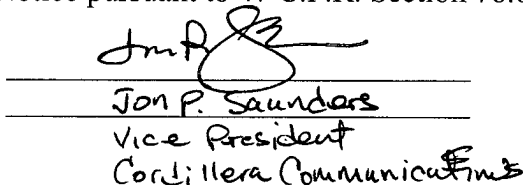 Jon P. Saunders
Vice President
Cordillera Communications